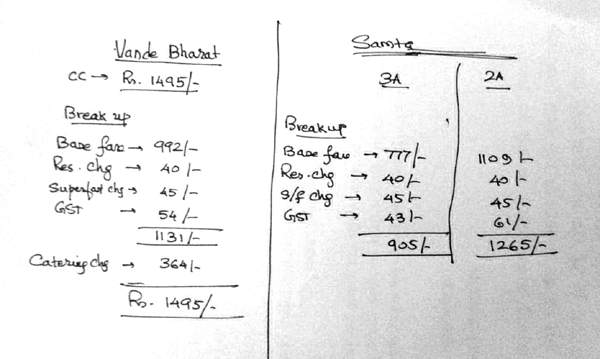 Vande Bharat
CC → Rs. 1495/-
Break up
Base fare → 992/-
Res. chg → 40/-
Superfast chg → 45/-
GST → 54/-
1131/-
Catering chg → 364/-
Rs. 1495/-
Samta
3A 2A
Breakup
Base fare → 777/- 1109/-
Res. chg → 40/- 40/-
S/f chg → 45/- 45/-
GST → 43/- 61/-
905/- 1265/-